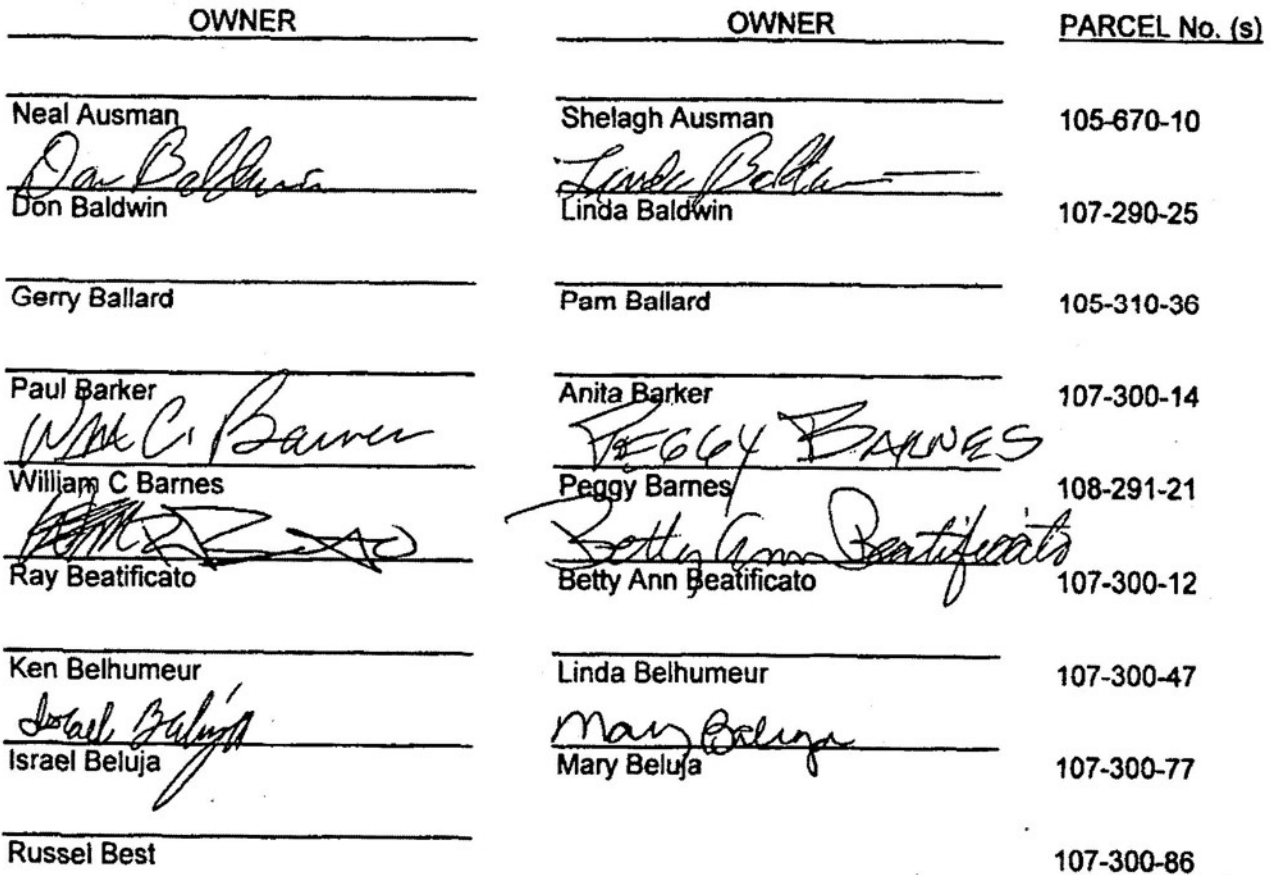 OWNER OWNER PARCEL No. (s)
Neal Ausman Shelagh Ausman 105-670-10
Don Baldwin Linda Baldwin
Don Baldwin Linda Baldwin 107-290-25
Gerry Ballard Pam Ballard 105-310-36
Paul Barker Anita Barker 107-300-14
Wm C. Barnes PEGGY BARNES
William C Barnes Peggy Barnes 108-291-21
Betty Ann Beatificato
Ray Beatificato Betty Ann Beatificato 107-300-12
Ken Belhumeur Linda Belhumeur 107-300-47
Israel Beluja Mary Beluja
Israel Beluja Mary Beluja 107-300-77
Russel Best 107-300-86